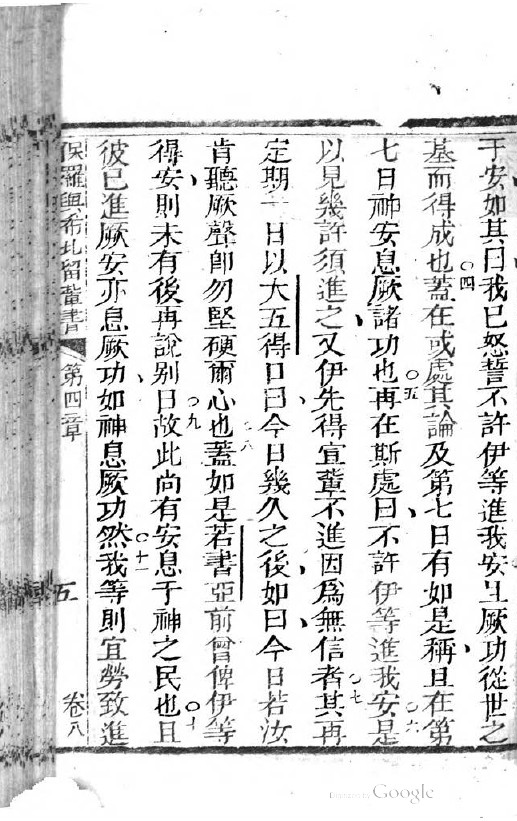 于安如其曰我已怒誓不許伊等進我安且厥功從世之
基而得成也○四蓋在或處其論及第七日有如是稱且在第
七日神安息厥諸功也○五再在斯處曰不許伊等進我安○六是
以見幾許須進之又伊先得宣輩不進因爲無信者○七其再
定期一日以大五得口曰今日幾久之後如曰今日若汝
肯聽厥聲卽勿堅硬爾心也○八蓋如是若書亞前曾俾伊等
得安則未有後再說别日○九故此尚有安息于神之民也○十且
彼已進厥安亦息厥功如神息厥功○十一然我等則宜勞致進
保羅與希比留輩書 第四章 五 卷八
Google